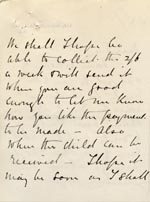 We shall I hope be
able to collect the 2/6
a week & will send it
when you are good
enough to let me know
how you like the payment
to be made - Also
when the child can be
received - I hope it
may be soon as I shall